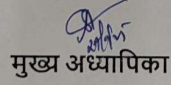 मुख्य अध्यापिका